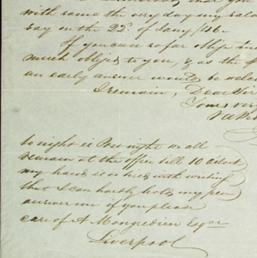 with same the very day my
say on the 22d of Jany /46.
If you can so far
much oblige to you, & as the
an early answer would be
I remain, Dear Sir
Yours
to night is Post night & all
remain at the office till 10 oclock
my hand is so tired with writing
that I can hardly hold my pen
answer me if you please
care of A Esqre
Liverpool